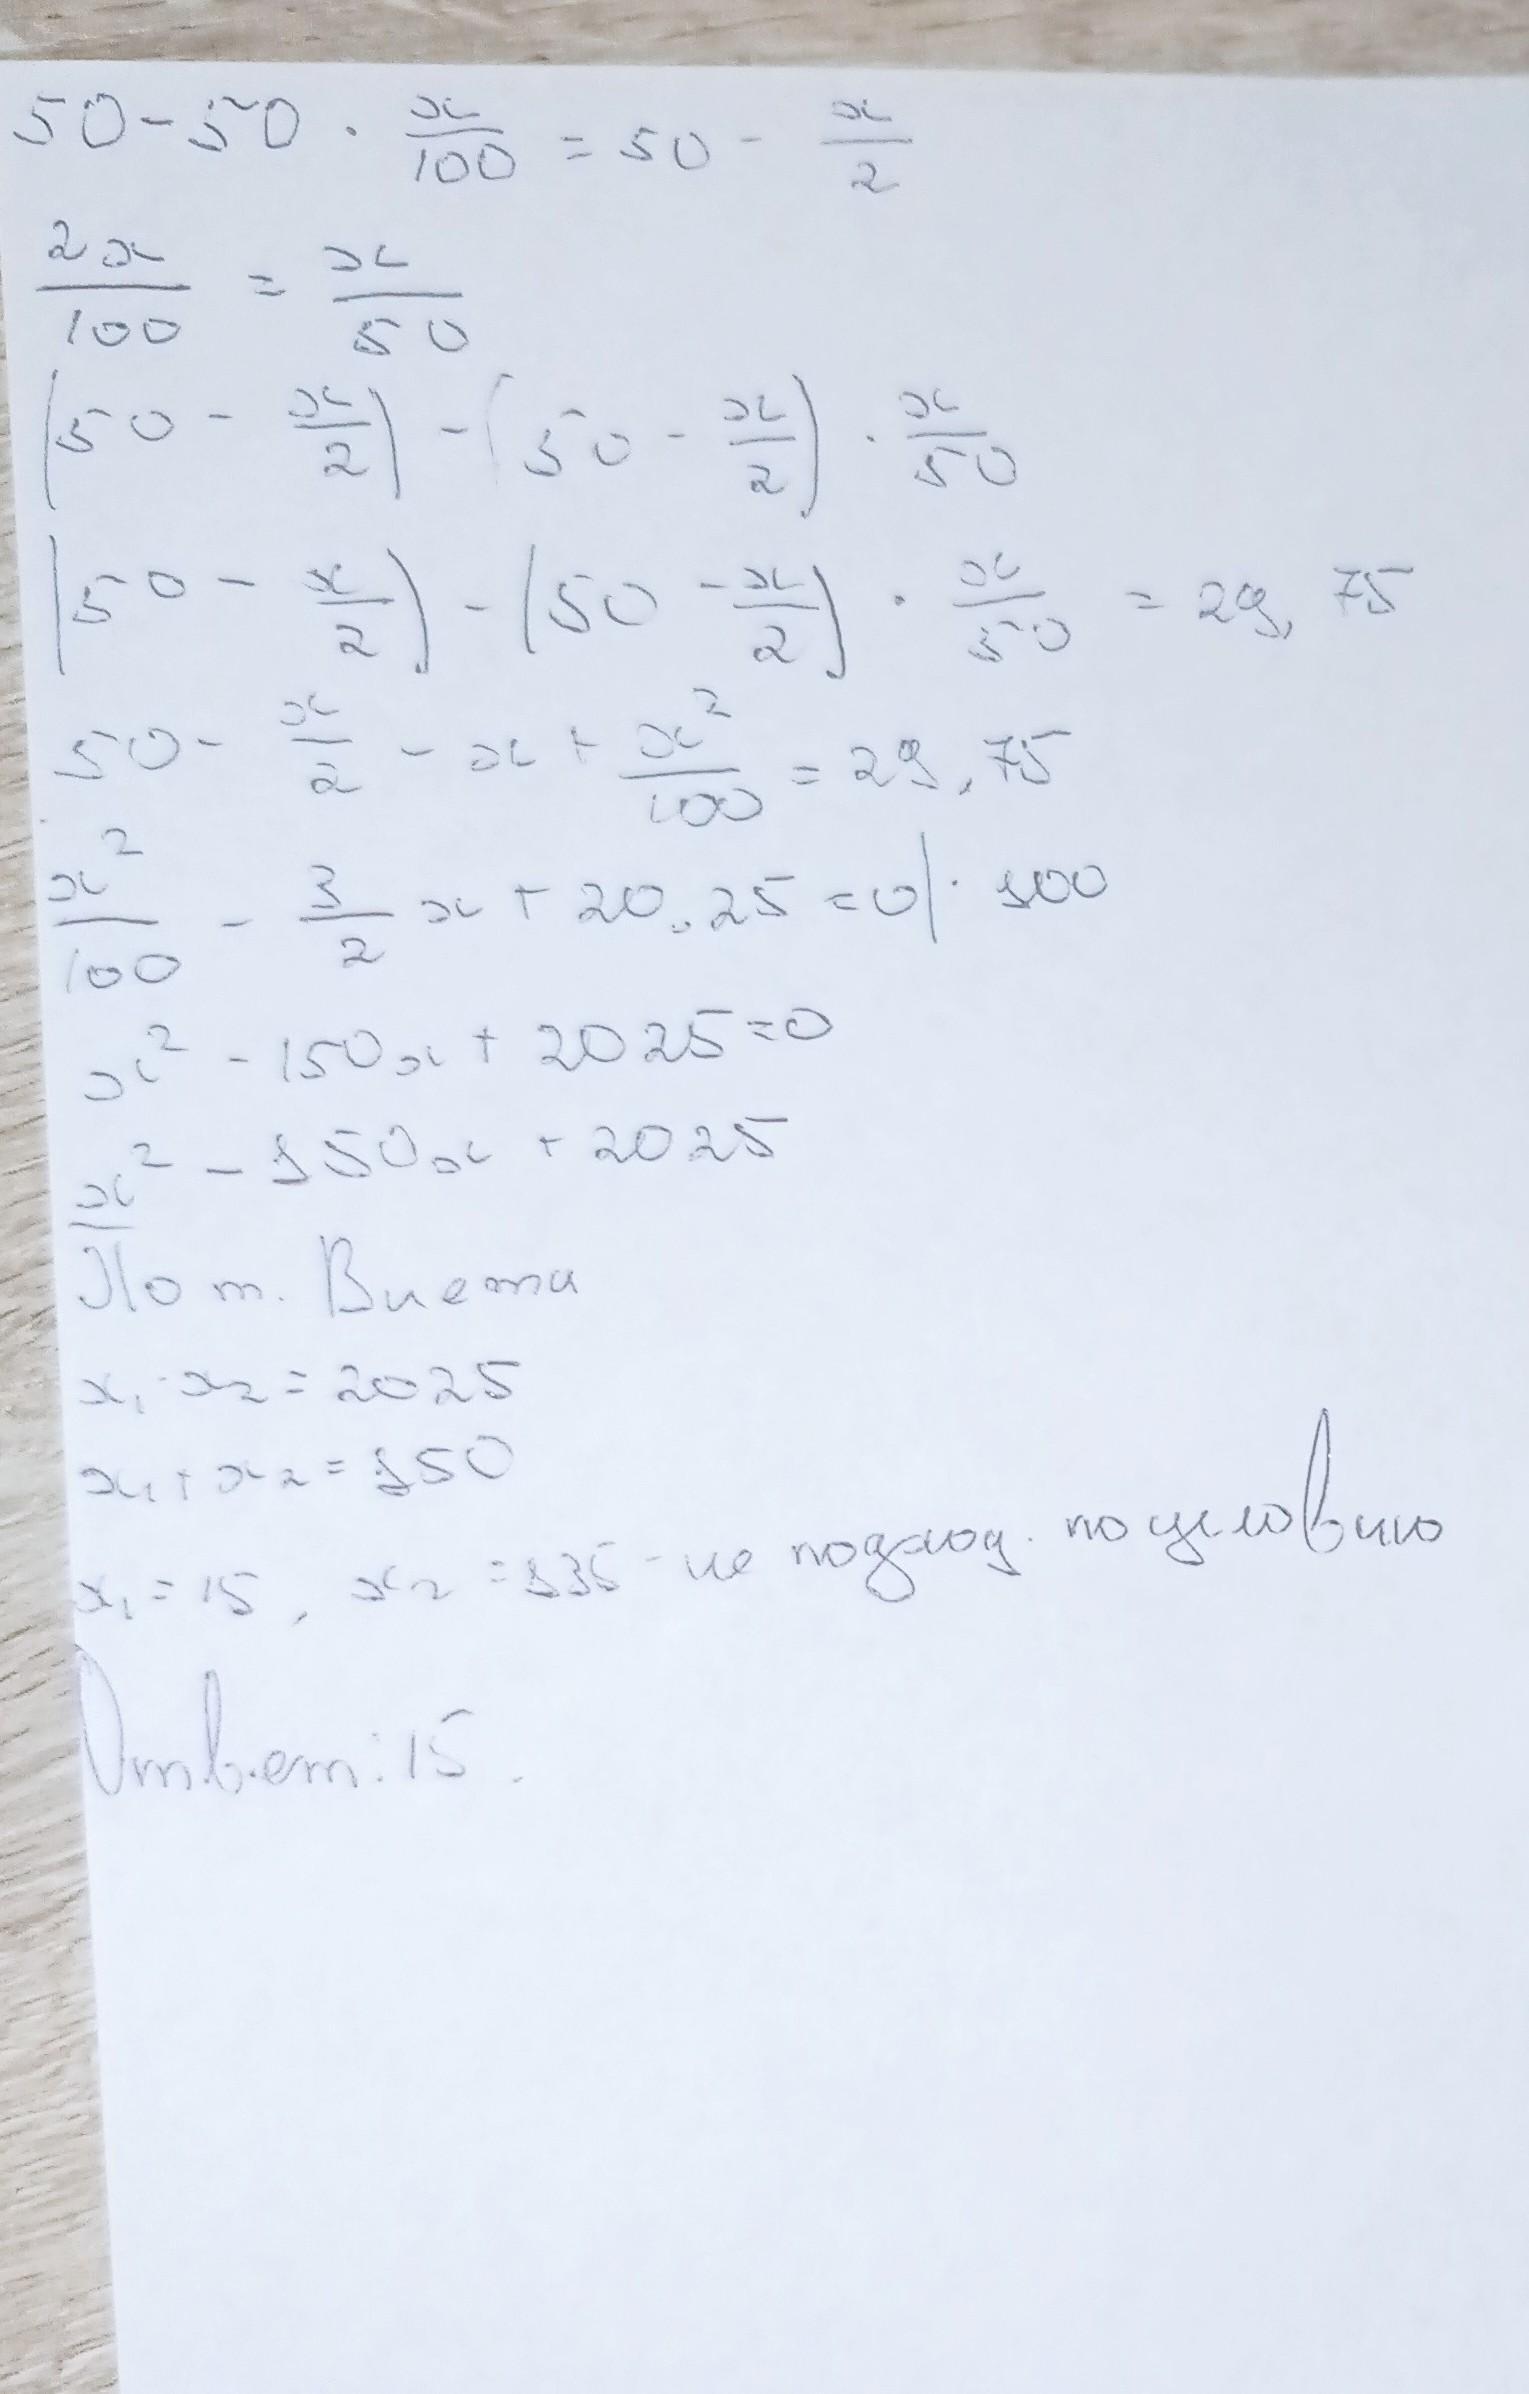 50 - 50 · x/100 = 50 - x/2
2x/100 = x/50
(50 - x/2) - (50 - x/2) · x/50
(50 - x/2) - (50 - x/2) · x/50 = 29,75
50 - x/2 - x + x²/100 = 29,75
x²/100 - 3/2 x + 20,25 = 0 | · 100
x² - 150x + 2025 = 0
x² - 150x + 2025
По т. Виета
x₁ · x₂ = 2025
x₁ + x₂ = 150
x₁ = 15, x₂ = 135 - не подход. по условию
Ответ: 15.